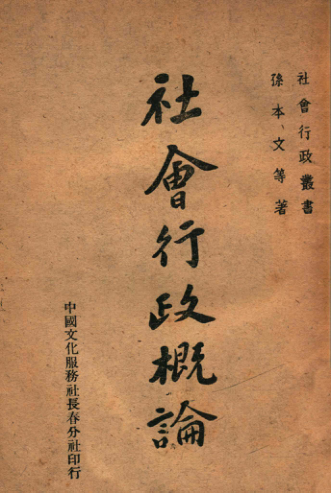 社會行政叢書
孫本文等著
社會行政概論
中國文化服務社長春分社印行